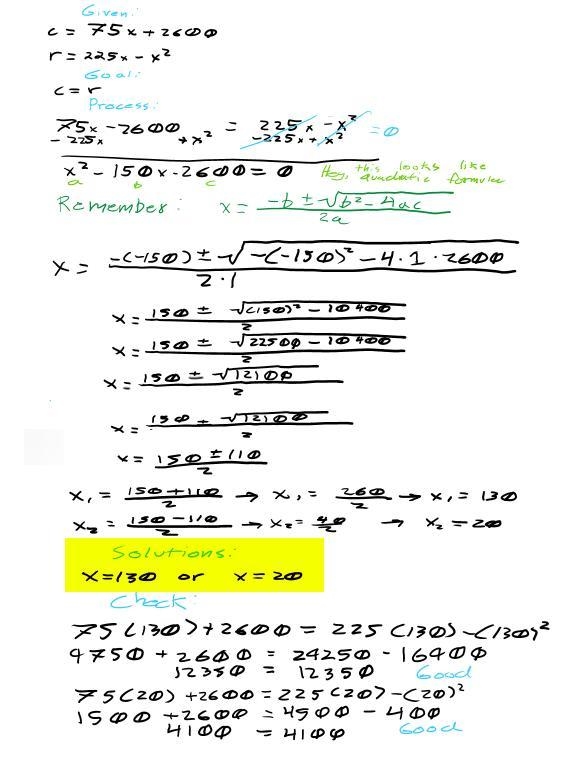 Given:
c = 75x + 2600
r = 225x - x²
Goal:
c = r
Process:
75x - 2600 = 225x - x²
- 225x + x² -225x + x² = 0
x² - 150x - 2600 = 0 Hey, this looks like
a b c quadratic formula
Remember: x = (-b ± √(b² - 4ac))/2a
x = (-(-150) ± √(-(-150)² - 4 · 1 · 2600))/(2 · 1)
x = (150 ± √((150)² - 10400))/2
x = (150 ± √(22500 - 10400))/2
x = (150 ± √12100)/2
x = (150 ± √12100)/2
x = (150 ± 110)/2
x₁ = (150 + 110)/2 → x₁ = 260/2 → x₁ = 130
x₂ = (150 - 110)/2 → x₂ = 40/2 → x₂ = 20
Solutions:
x = 130 or x = 20
Check:
75(130) + 2600 = 225(130) - (130)²
9750 + 2600 = 24250 - 16400
12350 = 12350 Good
75(20) + 2600 = 225(20) - (20)²
1500 + 2600 = 4500 - 400
4100 = 4100 Good